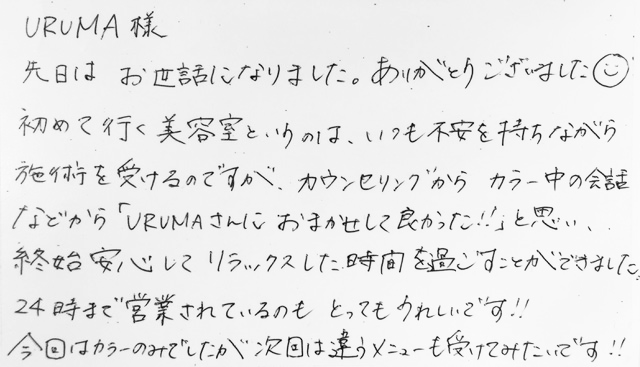 URUMA様
先日は お世話になりました。ありがとうございました
初めて行く美容室というのは、いつも不安を持ちながら
施術を受けるのですが、カウンセリングから カラー中の会話
などから「URUMAさんに おまかせして良かった!!」と思い、
終始安心して リラックスした時間を過ごすことができました
24時まで営業されているのも とってもうれしいです!!
今回はカラーのみでしたが 次回は違うメニューも受けてみたいです!!